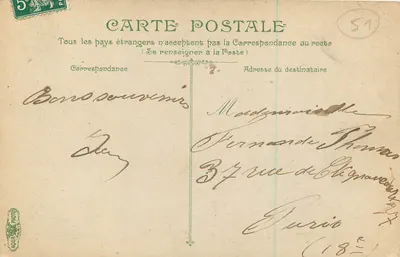 5
51
CARTE POSTALE
Tous les pays étrangers n'acceptent pas la Correspondance au recto
(Se renseigner à la Poste)
Correspondance
Adresse du destinataire
Bons souvenirs
Mademoiselle
Fernande Thomas
37 rue de
Paris
(18e)